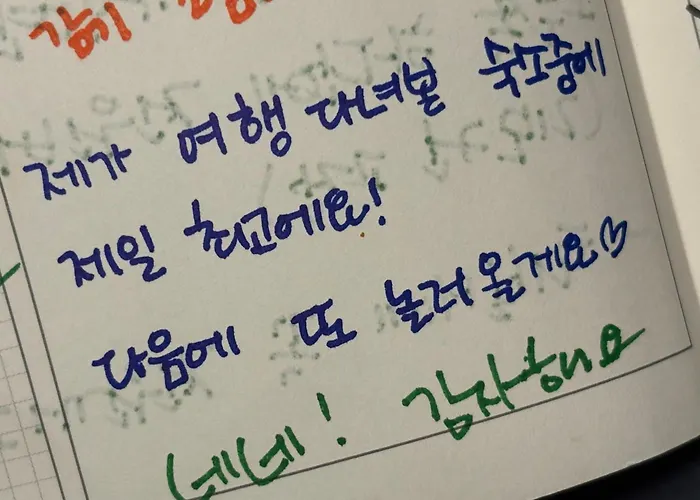 제가 여행 다녀본 숙소중에
제일 최고에요!
다음에 또 놀러올게요♡
네네! 감자해요